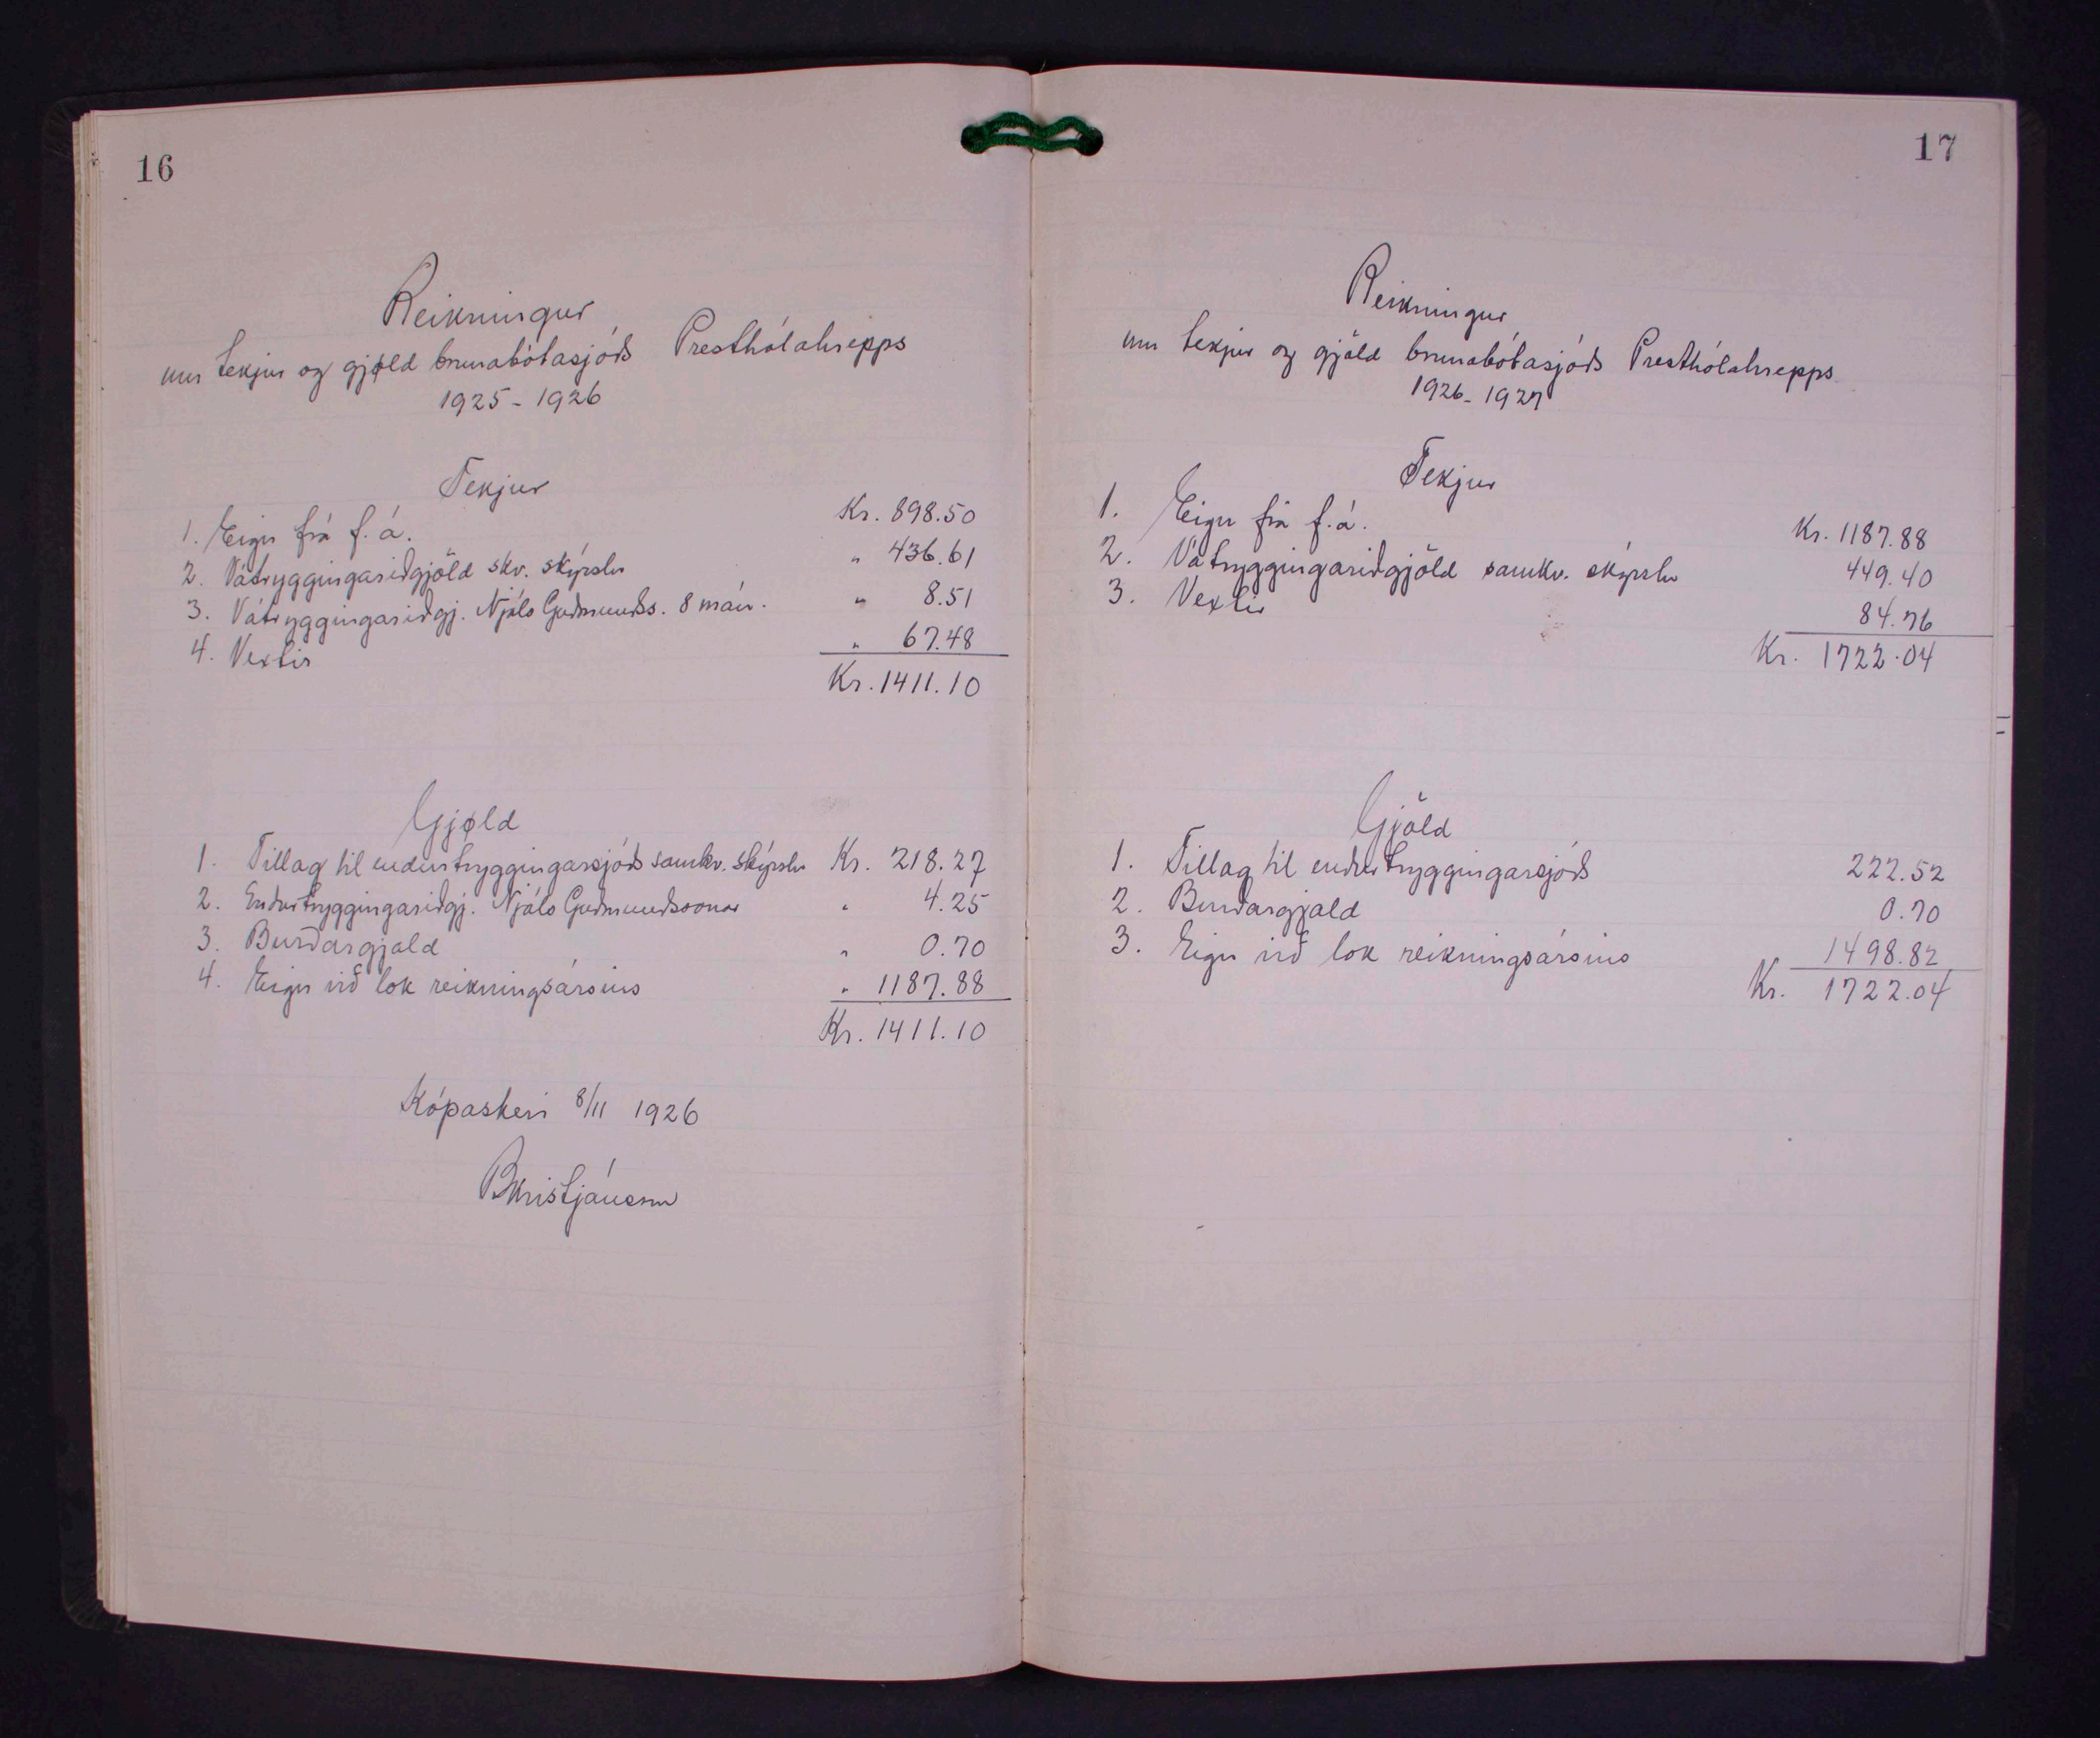 16
Reikningur
um tekjur og gjöld brunabótasjóðs Presthólahrepps
1925 - 1926
Tekjur
1. Eign frá f. á. Kr. 898.50
2. Vátryggingariðgjöld skv. skýrslu " 436.61
3. Vátryggingariðgj. Njáls Guðmunds. 8 mán. " 8.51
4. Vextir " 67.48
Kr. 1411.10
Gjöld
1. Tillag til endurtryggingarsjóðs samkv. skýrslu Kr. 218.27
2. Endurtryggingariðgj. Njáls Guðmundssonar " 4.25
3. Burðargjald " 0.70
4. Eign við lok reikningsársins " 1187.88
Kr. 1411.10
Kópaskeri 8/11 1926
BKristjánsson
17
Reikningur
um tekjur og gjöld brunabótasjóðs Presthólahrepps
1926 - 1927
Tekjur
1. Eign frá f. á. Kr. 1187.88
2. Vátryggingariðgjöld samkv. skýrslu 449.40
3. Vextir 84.76
Kr. 1722.04
Gjöld
1. Tillag til endurtryggingarsjóðs 222.52
2. Burðargjald 0.70
3. Eign við lok reikningsársins 1498.82
Kr. 1722.04